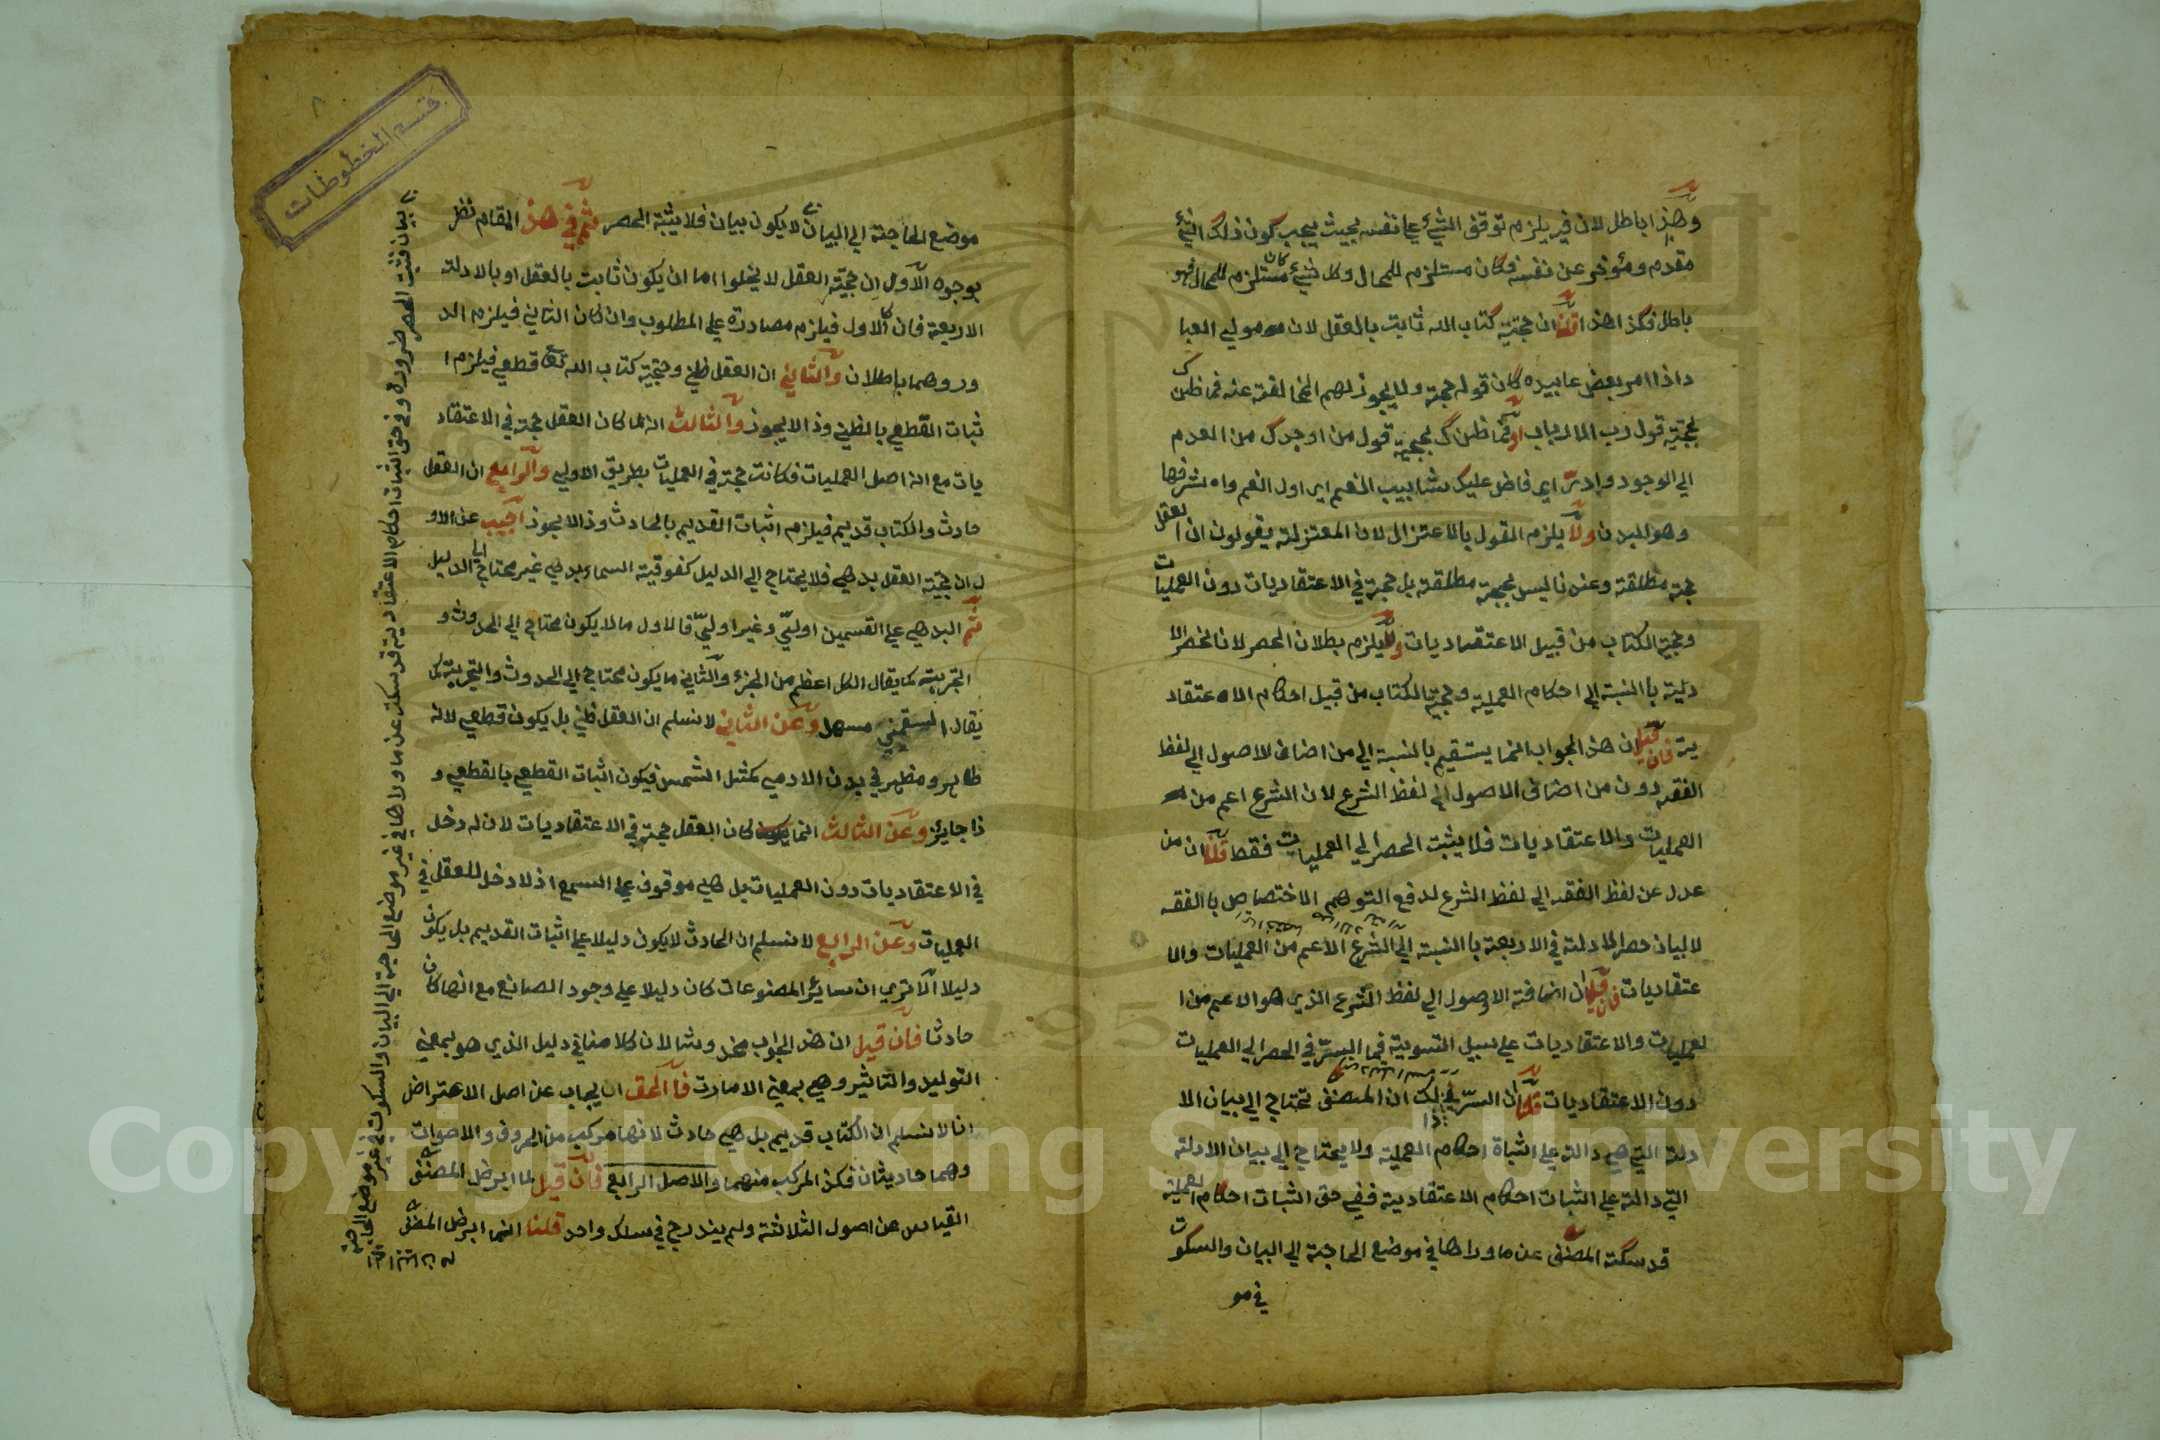 وهذا باطل لان فيه يلزم توقف الشيء علي نفسه بحيث يجب كون ذلك الشيء
مقدم ومؤخر عن نفسه فكان مستلزم للمحال وكل شيء كان مستلزم للمحال فهو
باطل فكذا هذا قلنا ان حجية كتاب الله ثابت بالعقل لان مولي العبا
داذا امر بعض عابيده كان قوله حجة ولا يجوز لهم المخالفة عنه فما ظنك
بحجية قول رب الارباب او فما ظنك بحجية قول من اوجدك من العدم
الي الوجود وادر اي فاض عليك شابيب النعم اي اول النعم واشرفها
وهو البدن ولا يلزم القول بالاعتزال لان المعتزلة يقولون ان العقل
حجة مطلقة وعندنا ليس بحجة مطلقة بل حجة في الاعتقاديات دون العمليات
وحجية الكتاب من قبيل الاعتقاديات ولا يلزم بطلان الحصر لان الحصر الا
دلية بالنسبة الي احكام العملية وحجية الكتاب من قبيل احكام الاعتقاد
ية فان قيل ان هذ الجواب انما يستقيم بالنسبة الي من اضاف الاصول الي لفظ
الفقه دون من اضاف الاصول الي لفظ الشرع لان الشرع اعم من
العمليات والاعتقاديات فلا يثبت الحصر الي العمليات فقط قلنا ان من
عدل عن لفظ الفقه الي لفظ الشرع لدفع التوهم الاختصاص بالفقه
لا لبيان حصر الادلة في الاربعة بالنسبة الي الشرع الاعم من العمليات والا
عتقاديات فان قيل ان اضافة الاصول الي لفظ الشرع الذي هو الاعم من ا
لعمليات والاعتقاديات علي سبيل التسوية فما السر في الحصر الي العمليات
دون الاعتقاديات قلنا ان السر في ذلك ان المصنف تحتاج الي بيان الا
دلة التي هي دالة علي اثباة احكام العملية ولا يحتاج الي بيان الادلة
التي دالة علي اثبات احكام الاعتقادية ففي حق اثبات احكام العملية
قد سكت المصنف عن ما وراها في موضع الحاجة الي البيان والسكوت
في مو
موضع الحاجة الي البيان لا يكون بيان فلا يثبة الحصر ثم في هذ المقام نظر
بوجوه الاول ان حجية العقل لا يخلوا اما ان يكون ثابت بالعقل او بالادلة
الاربعة فان كا الاول فيلزم مصادرة علي المطلوب وان كان الثاني فيلزم الد
ور وهما باطلان والثاني ان العقل ظني وحجية كتاب الله تع قطعي فيلزم ا
ثبات القطعي بالظني وذا لا يجوز والثالث انه لما كان العقل حجة في الاعتقاد
يات مع انه اصل العمليات فكانت حجة في العمليات بطريق الاولي والرابع ان العقل
حادث والكتاب قديم فيلزم اثبات القديم بالحادث وذا لا يجوز اجيب عن الاو
ل ان حجية العقل بدهي فلا يحتاج الي الدليل كفوقية السماء بدهي غير محتاج الي الدليل
ثم البدهي علي القسمين اولي وغير اولي فالاول ما لا يكون محتاج الي الحدوث و
التجربة كما يقال الكل اعظم من الجزء والثاني ما يكون محتاج الي الحدوث والتجربة كما
يقال السقمني مسهل وعن الثاني لا نسلم ان العقل ظني بل يكون قطعي لانه
طاهر ومظهر في بدن الادمي كمثل الشمس فيكون اثبات القطعي بالقطعي و
ذا جايز وعن الثالث انما كان العقل حجة في الاعتقاديات لان له دخل
في الاعتقاديات دون العمليات بل هي موقوف علي السمع اذ لا دخل للعقل في
العمليات وعن الرابع لا نسلم ان الحادث لا يكون دليلا علي اثبات القديم بل يكون
دليلا الا تري ان سائر المصنوعات كان دليلا علي وجود الصانع مع انها كان
حادثا فان قيل ان هذ الجواب مخدوشا لان كلامنا في دليل الذي هو بمعني
التوليد والتاثير وهي بمعني الامارت فالحق ان يجاب عن اصل الاعتراض
انا لا نسلم ان الكتاب قديم بل هي حادث لانها مركب من الحروف والاصوات
وهما حاديثان فكذ المركب منهما والاصل الرابع فان قيل لما ابرض المصنف
القياس عن اصول الثلاثة ولم يندرج في سلك واحد قلنا انما ابرض المصنف
بيان فثبت الحصر ضرورة وفي حق اثبات احكام الاعتقادية قد سكت عن ما وراها في غير موضع الحاجة الي البيان والسكوت في غير موضع الحاجة
قسم المخطوطات
٨
1957
Copyright © King Saud University